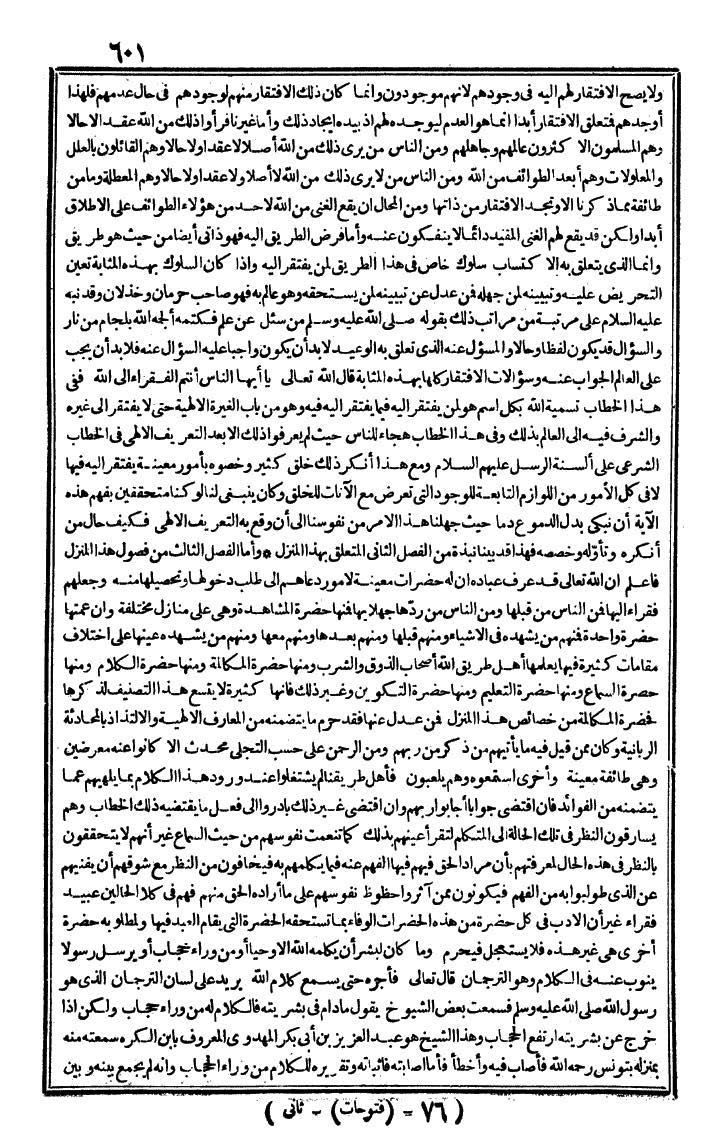 ٦٠١
ولا يصح الافتقار لهم اليه فى وجودهم لانهم موجودون وانما كان ذلك الافتقار منهم لوجودهم فى حال عدمهم فلهذا
أوجدهم فتعلق الافتقار أبدا انما هو العدم ليوجده لهم اذ بيده ايجاد ذلك وأما غيرنا فرأوا ذلك من الله عقد الا حالا
وهم المسلمون الا كثرون عالمهم وجاهلهم ومن الناس من يرى ذلك من الله أصلا لا عقد اولا حالا وهم القائلون بالعلل
والمعلولات وهم أبعد الطوائف من الله ومن الناس من لا يرى ذلك من الله لا أصلا ولا عقد اولا حالا وهم المعطلة وما من
طائفة مماذ كرنا الا وتجد الافتقار من ذاتها ومن المحال ان يقع الغنى من الله لاحد من هؤلاء الطوائف على الاطلاق
أبدا ولكن قد يقع لهم الغنى المقيد دائما لا ينفكون عنه وأما فرض الطريق اليه فهو ذاتى أيضا من حيث هو طريق
وانما الذى يتعلق به الا كتساب سلوك خاص فى هذا الطريق لمن يفتقر اليه واذا كان السلوك بهذه المثابة تعين
التحريض عليه وتبيينه لمن جهله فمن عدل عن تبيينه لمن يستحقه وهو عالم به فهو صاحب حرمان وخذلان وقد نبه
عليه السلام على مرتبة من مراتب ذلك بقوله صلى الله عليه وسلم من سئل عن علم فكتمه ألجمه الله بلجام من نار
والسؤال قد يكون لفظا وحالا والمسؤل عنه الذى تعلق به الوعيد لا بد أن يكون واجبا عليه السؤال عنه فلا بد أن يجب
على العالم الجواب عنه وسؤالات الافتقار كلها بهذه المثابة قال الله تعالى يا أيها الناس أنتم الفقراء الى الله ففى
هذا الخطاب تسمية الله بكل اسم هو لمن يفتقر اليه فيما يفتقر اليه فيه وهو من باب الغيرة الالهية حتى لا يفتقر الى غيره
والشرف فيه الى العالم بذلك وفى هذا الخطاب هجاء للناس حيث لم يعرفوا ذلك الا بعد التعريف الالهى فى الخطاب
الشرعى على ألسنة الرسل عليهم السلام ومع هذا أنكر ذلك خلق كثير وخصوه بأمور معينة يفتقر اليه فيها
لا فى كل الأمور من اللوازم التابعة للوجود التى تعرض مع الآنات للخلق وكان ينبغى لنا لو كنا متحققين بفهم هذه
الآية أن نبكى بدل الدموع دما حيث جهلنا هذا الامر من نفوسنا الى أن وقع به التعريف الالهى فكيف حال من
أنكره وتأوله وخصصه فهذا قد بينا نبذة من الفصل الثانى المتعلق بهذا المنزل * وأما الفصل الثالث من فصول هذا المنزل
فاعلم ان الله تعالى قد عرف عباده ان له حضرات معينة لامور دعاهم الى طلب دخولها وتحصيلها منه وجعلهم
فقراء اليها فمن الناس من قبلها ومن الناس من ردها جهلا بها فمنها حضرة المشاهدة وهى على منازل مختلفة وان عمتها
حضرة واحدة فمنهم من يشهده فى الاشياء ومنهم قبلها ومنهم بعدها ومنهم معها ومنهم من يشهده عينها على اختلاف
مقامات كثيرة فيها يعلمها أهل طريق الله أصحاب الذوق والشرب ومنها حضرة المكالمة ومنها حضرة الكلام ومنها
حضرة السماع ومنها حضرة التعليم ومنها حضرة التكوين وغير ذلك فانها كثيرة لا يتسع هذا التصنيف لذكرها
فحضرة المكالمة من خصائص هذا المنزل فمن عدل عنها فقد حرم ما يتضمنه من المعارف الالهية والالتذاذ بالمحادثة
الربانية وكان ممن قيل فيه ما يأتيهم من ذكر من ربهم ومن الرحمن على حسب التجلى محدث الا كانوا عنه معرضين
وهى طائفة معينة وأخرى استمعوه وهم يلعبون فأهل طريقنا لم يشتغلوا عند ورود هذا الكلام بما يلهيهم عما
يتضمنه من الفوائد فان اقتضى جوابا أجابوا ربهم وان اقتضى غير ذلك بادروا الى فعل ما يقتضيه ذلك الخطاب وهم
يسارقون النظر فى تلك الحالة الى المتكلم لتقر أعينهم بذلك كما تنعمت نفوسهم من حيث السماع غير أنهم لا يتحققون
بالنظر فى هذه الحال لمعرفتهم بأن مراد الحق فيهم فيها الفهم عنه فيما يكلمهم به فيخافون من النظر مع شوقهم أن يفنيهم
عن الذى طولبوا به من الفهم فيكونون ممن آثروا حظوظ نفوسهم على ما أراده الحق منهم فهم فى كلا الحالين عبيد
فقراء غير أن الادب فى كل حضرة من هذه الحضرات الوفاء بما تستحقه الحضرة التى يقام العبد فيها ومطلوبه حضرة
أخرى هى غير هذه فلا يستعجل فيحرم وما كان لبشر أن يكلمه الله الا وحيا أو من وراء حجاب أو يرسل رسولا
ينوب عنه فى الكلام وهو الترجمان قال تعالى فأجره حتى يسمع كلام الله يريد على لسان الترجمان الذى هو
رسول الله صلى الله عليه وسلم فسمعت بعض الشيوخ يقول مادام فى بشريته فالكلام له من وراء حجاب ولكن اذا
خرج عن بشريته ارتفع الحجاب وهذا الشيخ هو عبد العزيز بن أبى بكر المهدوى المعروف بابن الكره سمعته منه
بمنزله بتونس رحمه الله فأصاب فيه وأخطأ فأما اصابته فاثباته وتقريره للكلام من وراء الحجاب وانه لم يجمع بينه وبين
( ٧٦ - (فتوحات) - ثانى )